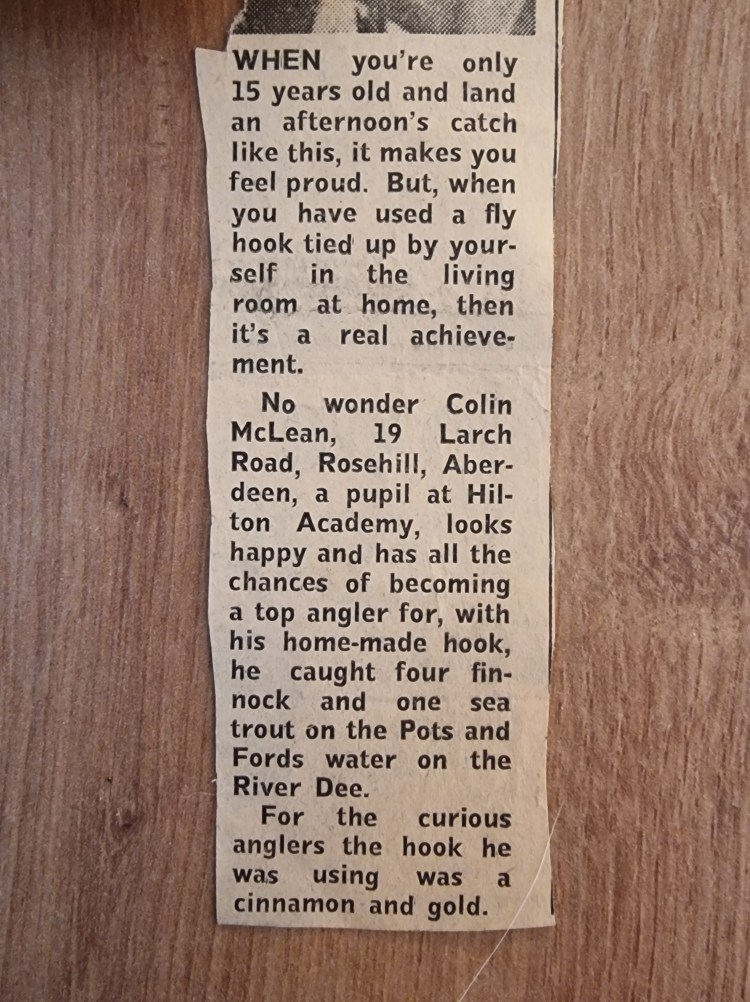 WHEN you're only
15 years old and land
an afternoon's catch
like this, it makes you
feel proud. But, when
you have used a fly
hook tied up by your-
self in the living
room at home, then
it's a real achieve-
ment.
No wonder Colin
McLean, 19 Larch
Road, Rosehill, Aber-
deen, a pupil at Hil-
ton Academy, looks
happy and has all the
chances of becoming
a top angler for, with
his home-made hook,
he caught four fin-
nock and one sea
trout on the Pots and
Fords water on the
River Dee.
For the curious
anglers the hook he
was using was a
cinnamon and gold.